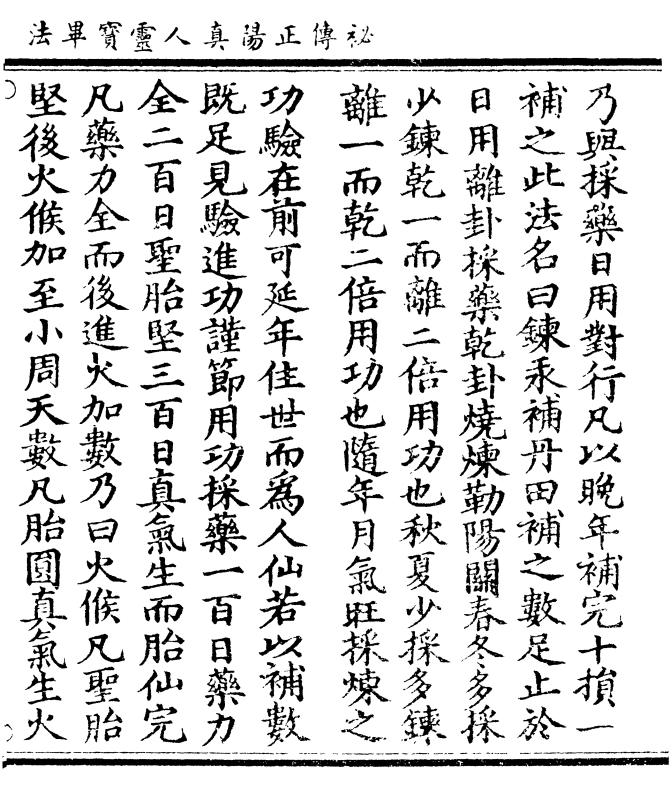 祕傳正陽真人靈寶畢法
乃與採藥日用對行凡以晩年補完十損一
補之此法名曰鍊汞補丹田補之數足止於
日用離卦採藥乾卦燒煉勒陽關春冬多採
少鍊乾一而離二倍用功也秋夏少採多鍊
離一而乾二倍用功也隨年月氣旺採煉之
功驗在前可延年住世而為人仙若以補數
既足見驗進功謹節用功採藥一百日藥力
全二百日聖胎堅三百日真氣生而胎仙完
凡藥力全而後進火加數乃曰火候凡聖胎
堅後火候加至小周天數凡胎圓真氣生火